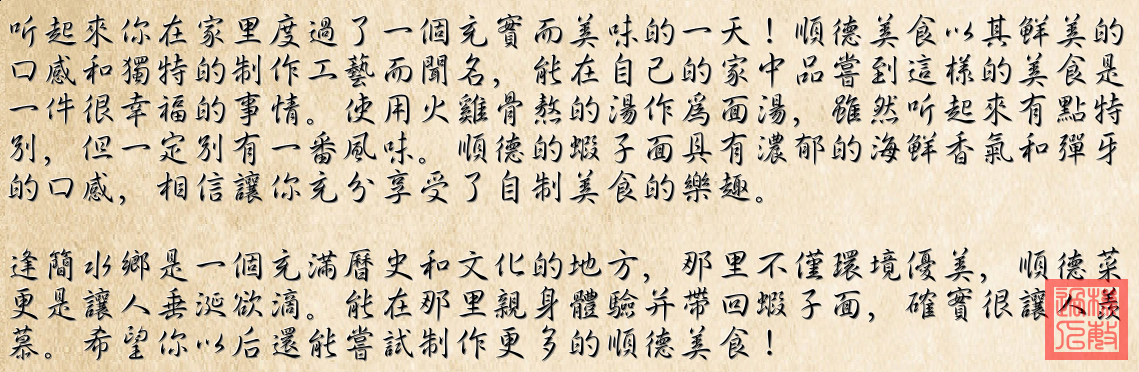 听起來你在家里度過了一個充實而美味的一天！順德美食以其鮮美的
口感和獨特的制作工藝而聞名，能在自己的家中品嘗到這樣的美食是
一件很幸福的事情。使用火雞骨熬的湯作爲面湯，雖然听起來有點特
別，但一定別有一番風味。順德的蝦子面具有濃郁的海鮮香氣和彈牙
的口感，相信讓你充分享受了自制美食的樂趣。
逢簡水鄉是一個充滿曆史和文化的地方，那里不僅環境優美，順德菜
更是讓人垂涎欲滴。能在那里親身體驗并帶回蝦子面，確實很讓人羨
慕。希望你以后還能嘗試制作更多的順德美食！